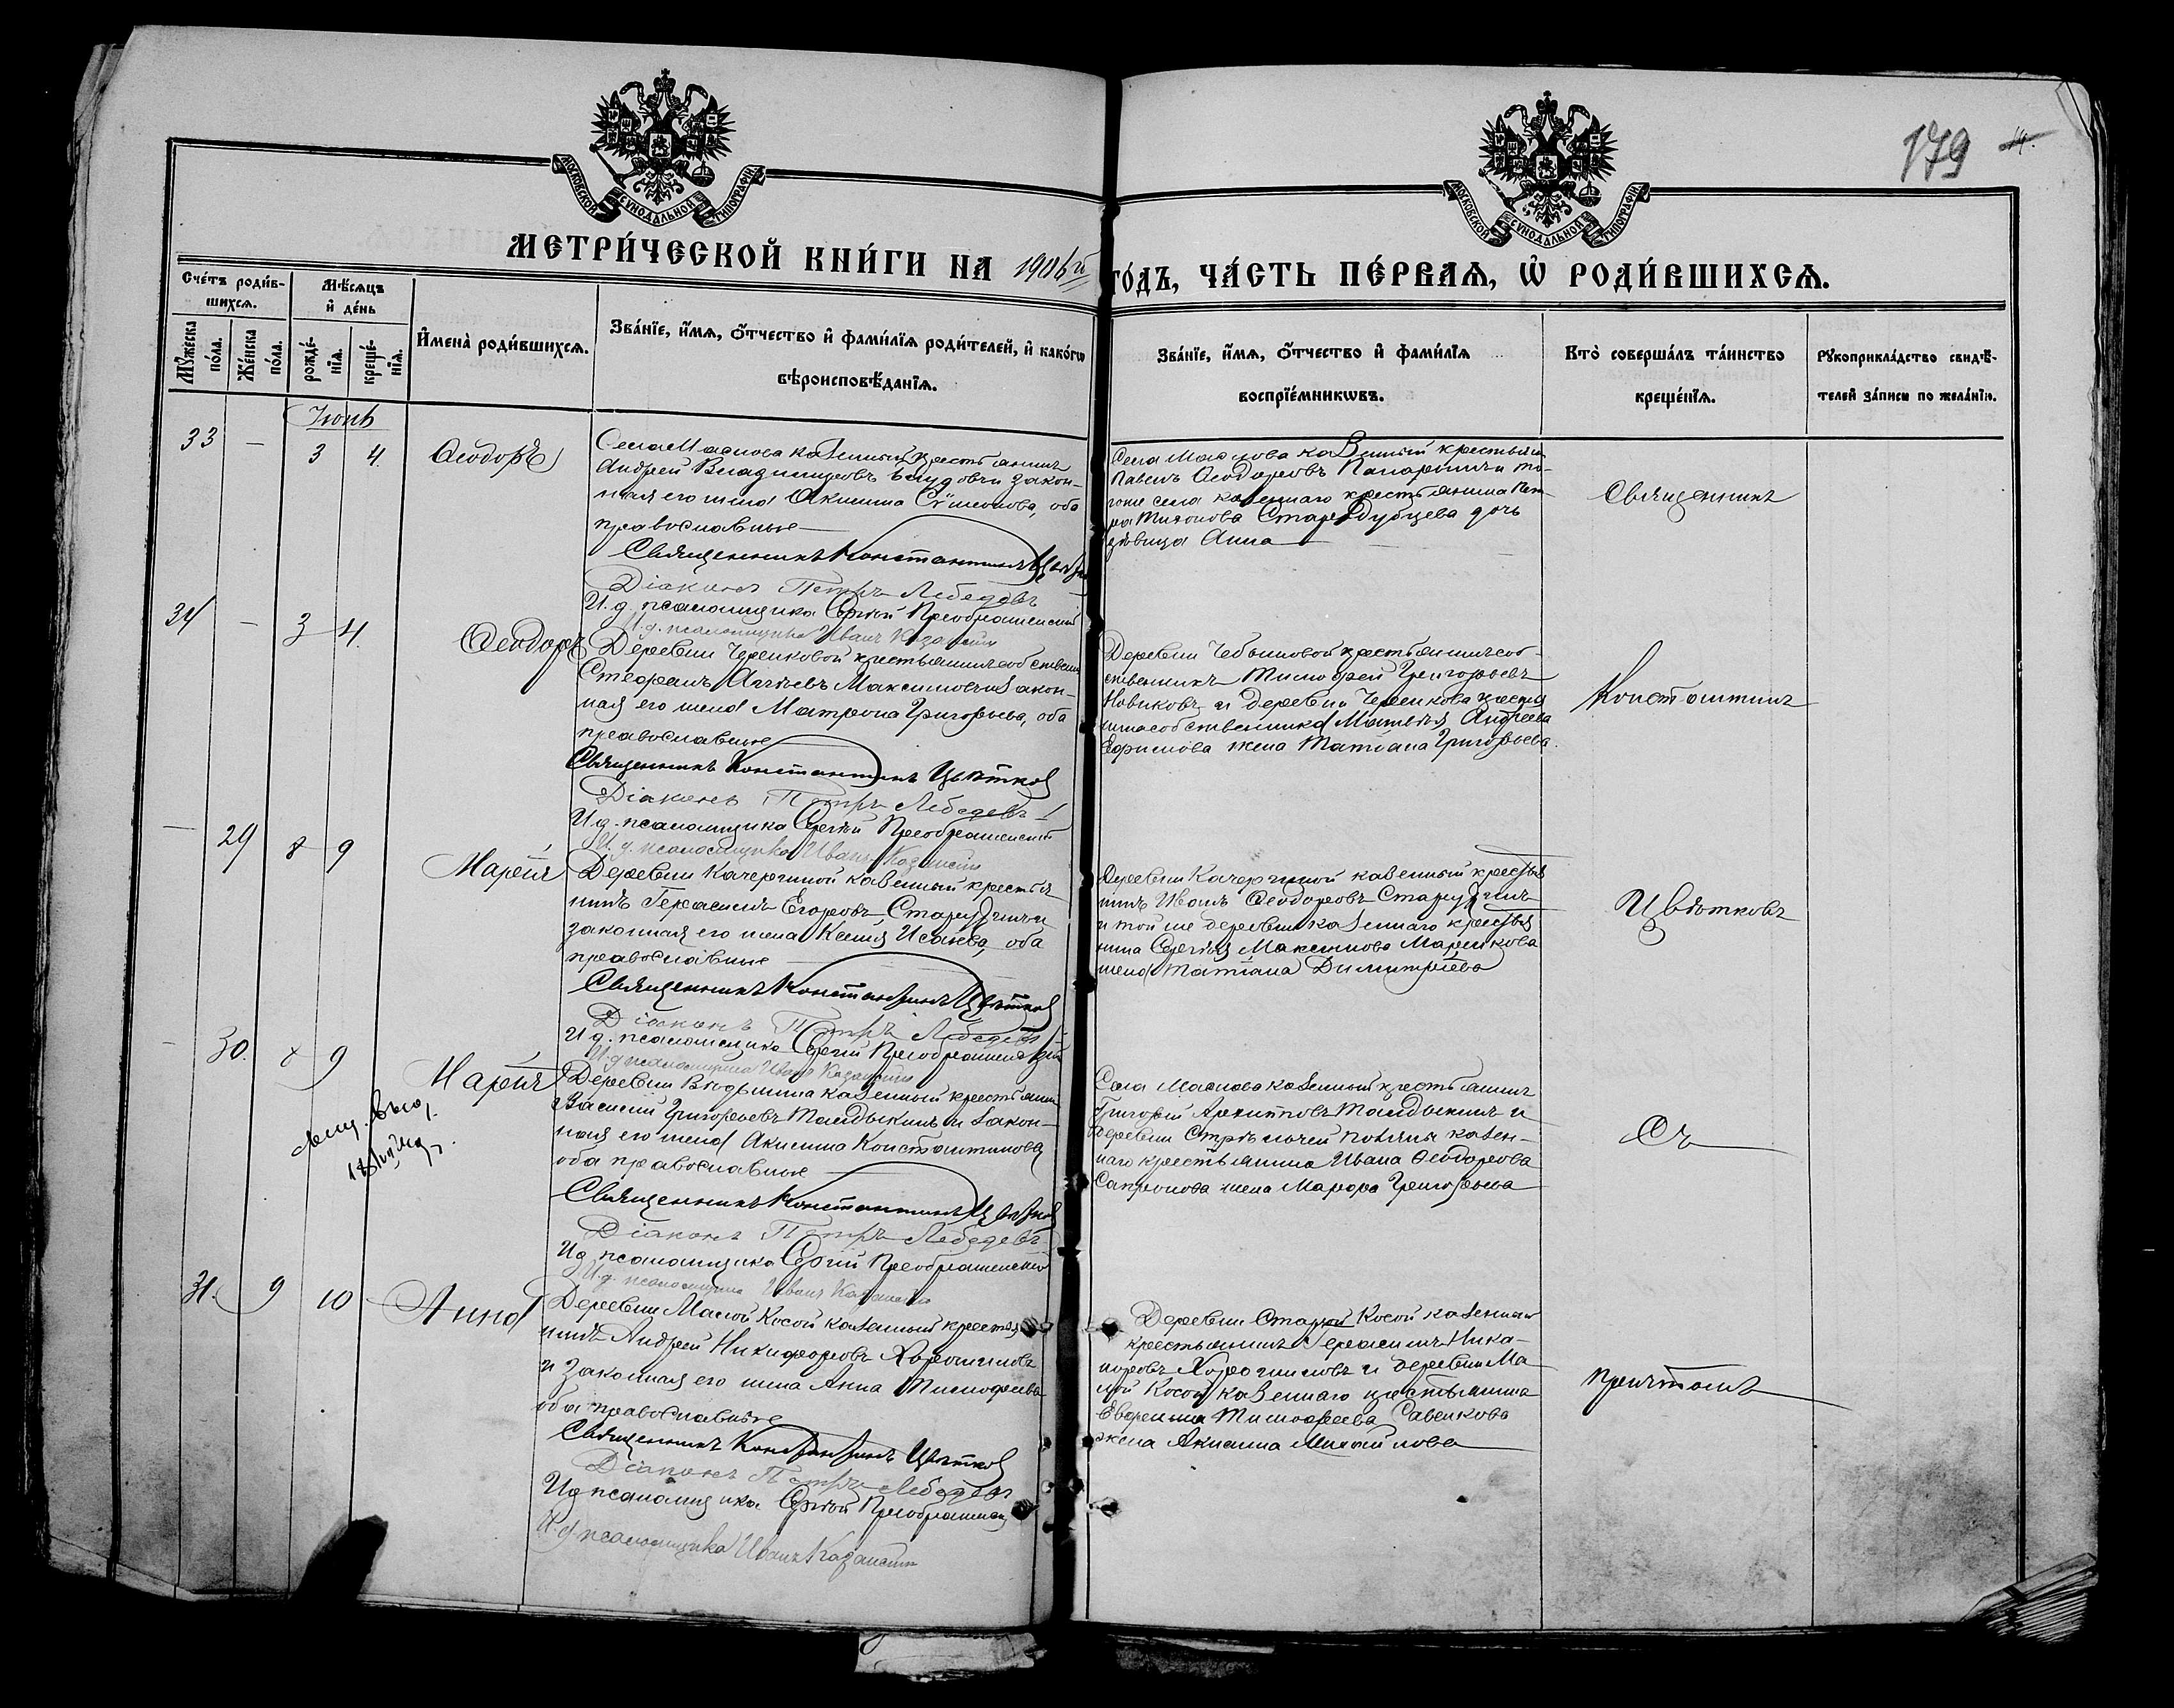 179 14.
МОСКОВСКОЙ СѴНОДАЛЬНОЙ ТИПОГРАФІИ
МОСКОВСКОЙ СѴНОДАЛЬНОЙ ТИПОГРАФІИ
МЕТРИ́ЧЕСКОЙ КНИ́ГИ НА 1906й ГО́ДЪ, ЧА́СТЬ ПЕ́РВАѦ, Ѡ҆ РОДИ́ВШИХСѦ.
Сче́тъ роди́в-
шихсѧ.
Мѣ́сѧцъ
и҆ де́нь
Мꙋ́жеска
по́ла.
Же́нска
по́ла.
рожде́-
нїѧ.
креще́-
нїѧ.
И҆мена̀ роди́вшихсѧ.
Зва́нїе, и҆́мѧ, ѻ҆́тчество и҆ фами́лїѧ роди́телей, и҆ како́гѡ
вѣроисповѣ́данїѧ.
Зва́нїе, и҆́мѧ, ѻ҆́тчество и҆ фами́лїѧ
воспрїе́мникѡвъ.
Кто̀ соверша́лъ та́инство
креще́нїѧ.
Рꙋкоприкла́дство свидѣ́-
телей за́писи по жела́нїю.
Іюнь
33 — 3 4. Ѳеодоръ
Села Маслова казенный крестьянинъ
Андрей Владимировъ и закон-
ная его жена Акилина Сѵмеонова, оба
православные
Священникъ Константинъ Цвѣтковъ
Діаконъ Петръ Лебедевъ
И. д. псаломщика Сергій Преображенский
И. д. псаломщика Иванъ Казанский
Села Маслова казенный крестьянин
Павелъ Ѳеодоровъ и то-
гоже села казеннаго крестьянина Пет-
ра Тихонова Стародубцева дочь
дѣвица Анна
Священникъ
34 — 3 4. Ѳеодоръ
Деревни Черенковой крестьянинъ собствен
Стефанъ Максимовъ и закон-
ная его жена Матрона Григорьева, оба
православные
Священникъ Константинъ Цвѣтков
Діаконъ Петръ Лебедевъ
И. д. псаломщика Сергій Преображенский
И. д. псаломщика Иванъ Казанский
Деревни крестьянинъ соб-
ственникъ Тимофей Григорьевъ
Новиковъ и деревни Черенкова крестья
нина собственника Матвѣя Андреева
Ефимова жена Татіана Григорьева.
Константинъ
— 29 8 9 Марія
Деревни Качергиной казенный крестья
нинъ Герасимъ Егоровъ и
законная его жена Ксенія Исаева, оба
православные
Священникъ Константинъ Цвѣтков
Діаконъ Петръ Лебедевъ
И. д. псаломщика Сергій Преображенский
И. д. псаломщика Иванъ Казанский
Деревни Качергиной казенный крестья
нинъ Иванъ Ѳеодоровъ
и той же деревни казеннаго крестья
нина Сергѣя Максимова Маренкова
жена Татіана Димитріева
Цвѣтковъ
— 30. 8 9 Марія
Деревни казенный крестьянин
Василій Григорьевъ Талдыкинъ и закон-
ная его жена Акилина Константинова
оба православные
Священникъ Константинъ Цвѣтков
Діаконъ Петръ Лебедевъ
И. д. псаломщика Сергій Преображенский
И. д. псаломщика Иванъ Казанский
Села Маслова казенный крестьянинъ
Григорій Архиповъ Талдыкинъ и
деревни Стрѣлечей Поляны казен-
наго крестьянина Ивана Ѳеодорова
Сапронова жена Марѳа Григорьева
Съ
31. 9 10 Анна
Деревни Малой Косой казенный крестья
нинъ Андрей Никифоровъ Хорошиловъ
и законная его жена Анна Тимофеева
оба православные
Священникъ Константинъ Цвѣтков
Діаконъ Петръ Лебедевъ
И. д. псаломщика Сергій Преображенск
И. д. псаломщика Иванъ Казанский
Деревни Старой Косой казенный
крестьянинъ Герасимъ Ника-
норовъ Хорошиловъ и деревни Ма
лой Косой казеннаго крестьянина
Тимофеева Савенкова
жена Акилина Михайлова
причтомъ